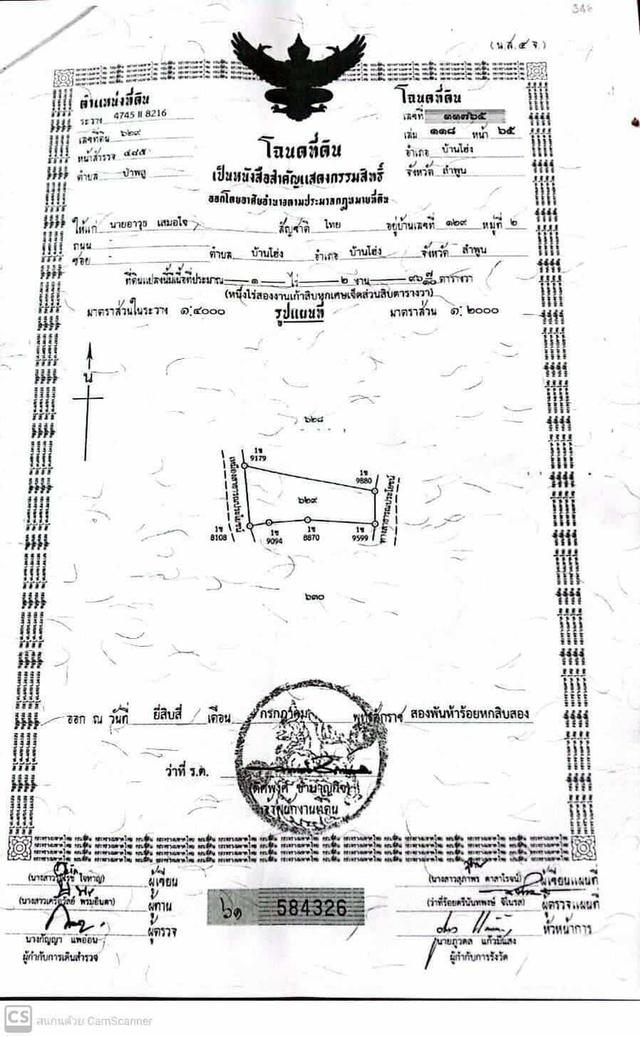 346
(น.ส.๔ จ.)
ตำแหน่งที่ดิน
ระวาง 4745 II 8216
เลขที่ดิน ๖๒๙
หน้าสำรวจ ๔๘๕
ตำบล ป่าพลู
โฉนดที่ดิน
เลขที่ ๑๑๗๖๕
เล่ม ๑๑๘ หน้า ๖๕
อำเภอ บ้านโฮ่ง
จังหวัด ลำพูน
โฉนดที่ดิน
เป็นหนังสือสำคัญแสดงกรรมสิทธิ์
ออกโดยอาศัยอำนาจตามประมวลกฎหมายที่ดิน
ให้แก่ นายอาวุธ เสมอใจ สัญชาติ ไทย อยู่บ้านเลขที่ ๑๒๙ หมู่ที่ ๒
ถนน
ซอย - ตำบล บ้านโฮ่ง อำเภอ บ้านโฮ่ง จังหวัด ลำพูน
ที่ดินแปลงนี้มีเนื้อที่ประมาณ ๑ ไร่ ๒ งาน ๙๖ ๗/๑๐ ตารางวา
(หนึ่งไร่สองงานเก้าสิบหกเศษเจ็ดส่วนสิบตารางวา)
มาตราส่วนในระวาง ๑:๔๐๐๐ รูปแผนที่ มาตราส่วน ๑:๒๐๐๐
น
๖๒๘
1ข
9179
1ข
9880
๖๒๙
ทางสาธารณประโยชน์
1ข
8108
1ข
9094
1ข
8870
1ข
9599
๖๓๐
ออก ณ วันที่ ยี่สิบสี่ เดือน กรกฎาคม พุทธศักราช สองพันห้าร้อยหกสิบสอง
ว่าที่ ร.ต.
เจ้าพนักงานที่ดิน
ผู้เขียน
ผู้ทาน
ผู้ตรวจ
นางกัญญา แพอ่อน
ผู้กำกับการเดินสำรวจ
๖๑ 584326
ผู้เขียนแผนที่
ผู้ตรวจแผนที่
หัวหน้าการ
นายภูวดล แก้วมีแสง
ผู้กำกับการรังวัด
CS สแกนด้วย CamScanner